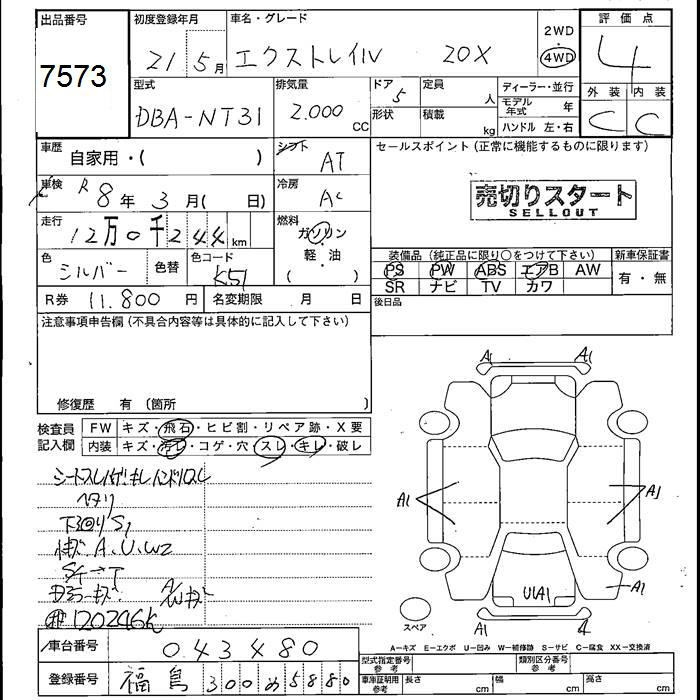 出品番号
7573
初度登録年月
21 5月
車名・グレード
エクストレイル 20X
2WD
・
4WD
評価点
4
外装 内装
C C
型式
DBA-NT31
排気量
2.000 CC
ドア
5
形状
定員
人
積載
kg
ディーラー・並行
モデル年式 年
ハンドル 左・右
車歴
自家用・( )
シフト
AT
セールスポイント (正常に機能するものに限ります)
売切りスタート
SELLOUT
車検
R 8年 3月( 日)
冷房
AC
走行
12万0千244km
燃料
ガソリン
・
軽・油
( )
色
シルバー
色替
色コード
K51
装備品 (純正品に限り○をつけて下さい)
PS PW ABS エアB AW
SR ナビ TV カワ
新車保証書
有・無
R券 11.800 円
名変期限 月 日
後日品
注意事項申告欄 (不具合内容等は具体的に記入して下さい)
修復歴 有 (箇所 )
検査員
記入欄
FW キズ・飛石・ヒビ割・リペア跡・X要
内装 キズ・汚レ・コゲ・穴・スレ・キレ・破レ
ヘタリ
下回りS1
A.U.W2
120246k
A1 A1
A1 A1
U1A1 A1
A1 4
スペア
A-キズ E-エクボ U-凹み W-補修跡 S-サビ C-腐食 XX-交換済
車台番号
043480
登録番号
福島 300 め 5880
型式指定番号
参考
類別区分番号
参考
車庫証明用
参考
長さ cm
幅 cm
高さ cm